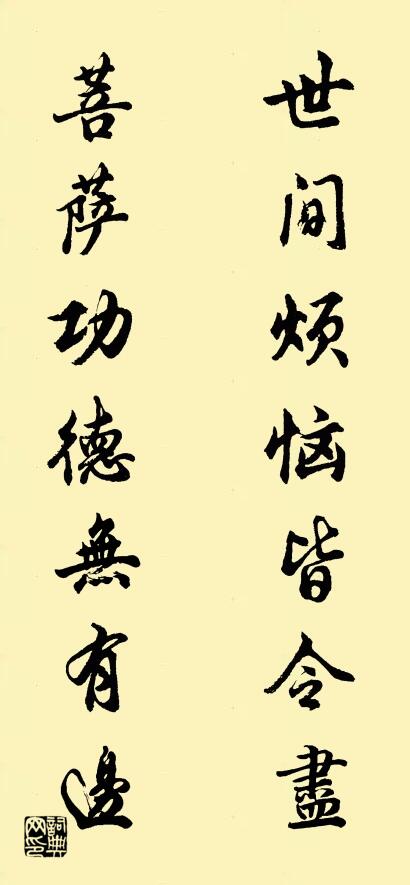 世间烦恼皆令盡
菩萨功德無有邊
詞典网印